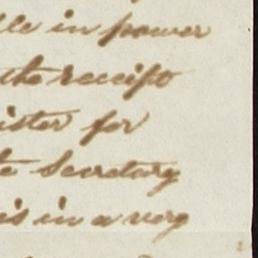 in power
the receipt
ister for
te Secretary
is in a very